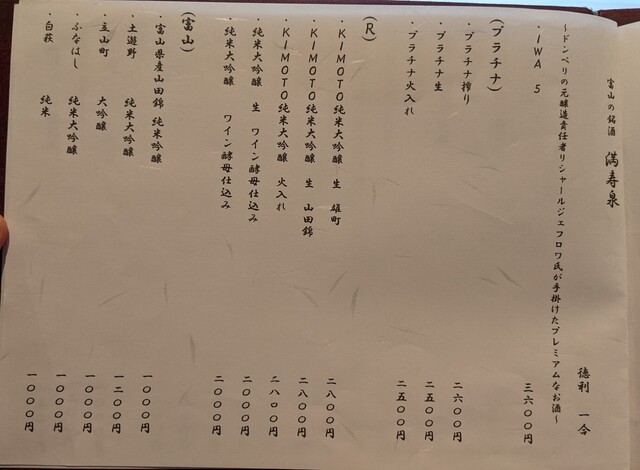 富山の銘酒 満寿泉
徳利 一合
~ドンペリの元醸造責任者リシャールジェフロワ氏が手掛けたプレミアムなお酒~
・IWA 5 三六〇〇円
(プラチナ)
・プラチナ搾り 二六〇〇円
・プラチナ生 二五〇〇円
・プラチナ火入れ 二五〇〇円
(R)
・KIMOTO純米大吟醸 生 雄町 二八〇〇円
・KIMOTO純米大吟醸 生 山田錦 二八〇〇円
・KIMOTO純米大吟醸 火入れ 二八〇〇円
・純米大吟醸 生 ワイン酵母仕込み 二〇〇〇円
・純米大吟醸 ワイン酵母仕込み 二〇〇〇円
(富山)
富山県産山田錦 純米吟醸 一〇〇〇円
・土遊野 純米大吟醸 一二〇〇円
・立山町 大吟醸 一〇〇〇円
・ふなはし 純米大吟醸 一〇〇〇円
・白萩 純米 一〇〇〇円